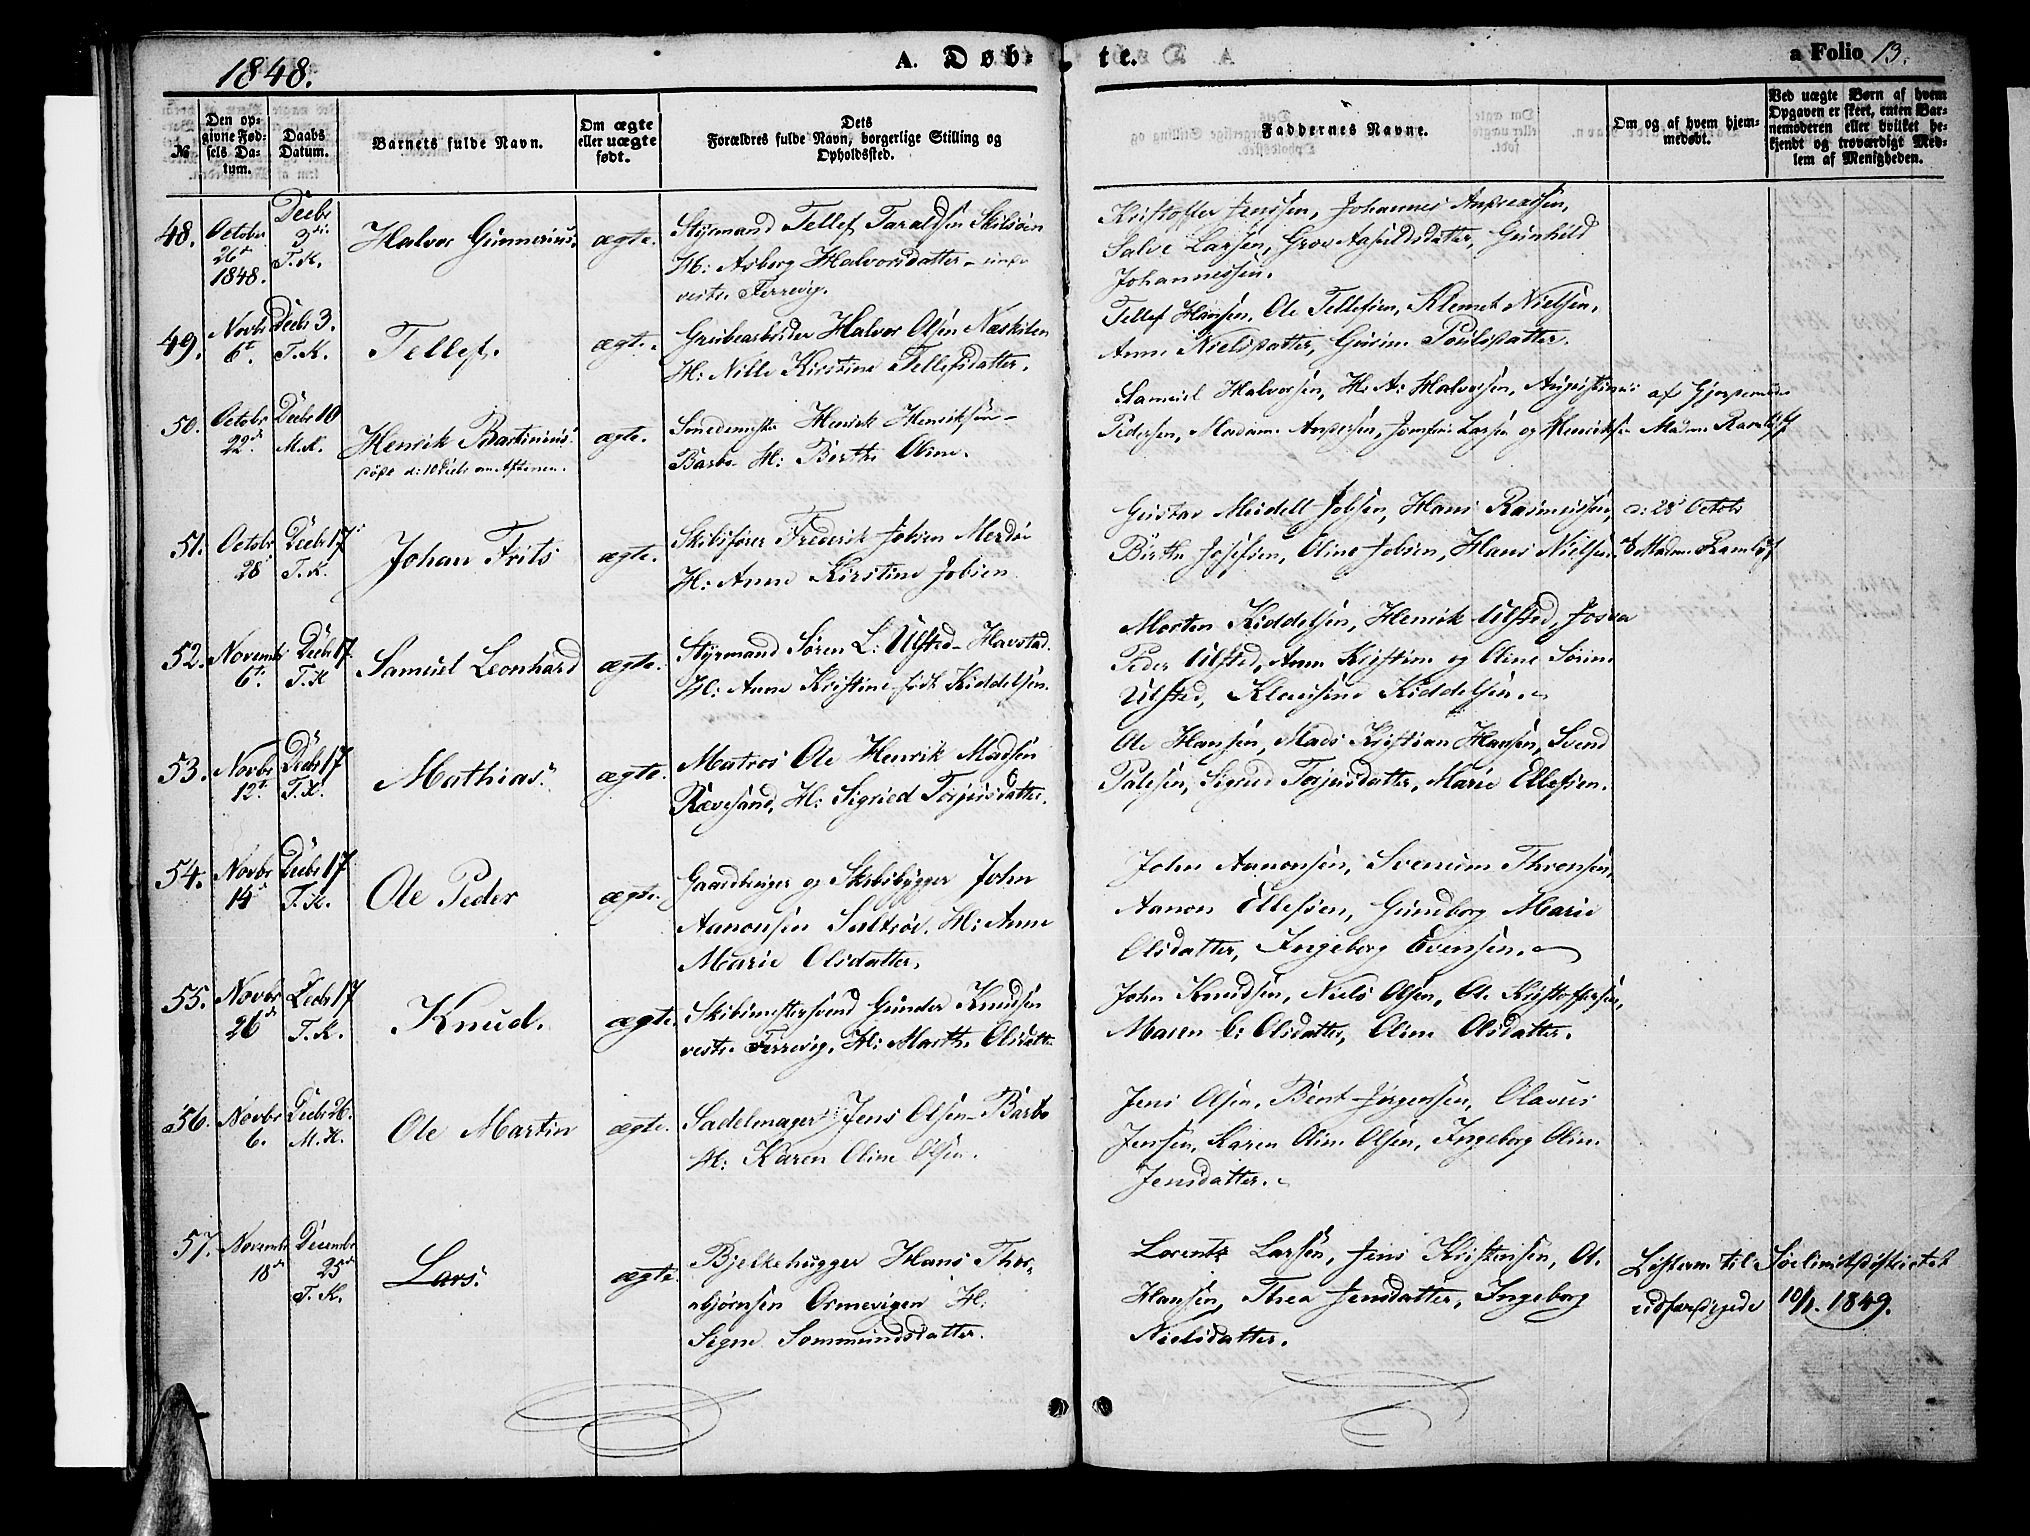 1848.
A. Døb-
te.
a Folio 13.
№
Den op-
givne Fød-
sels Da-
tum.
Daabs
Datum.
Barnets fulde Navn.
Om ægte
eller uægte
født.
Dets
Forældres fulde Navn, borgerlige Stilling og
Opholdssted.
Faddernes Navne.
Om og af hvem hjem-
medøbt.
Ved uægte Børn af hvem
Opgaven er skeet, enten Bar-
nemoderen eller hvilket be-
kjendt og troværdigt Med-
lem af Menigheden.
48.
Octobr
26de
1848.
Decbr
3die
T. K.
Halvor Gunnerius.
ægte.
Styrmand Tellef Taraldsen Skilsøen
H: Asberg Halvorsdatter
vestr. Færevig.
Kristoffer Jenssen, Johannes Andreassen,
Salve Larsen, Gro Aasuldsdatter, Gunhild
Johannessen.
49.
Novbr
6te
Decbr 3.
T. K.
Tellef.
ægte.
Grubearbeider Halvor Olsen Næskilen
H: Nille Kirstine Tellefsdatter.
Tellef Hansen, Ole Tellefsen, Klemet Nielsen,
Anne Nielsdatter, Gurine Poulsdatter.
50.
Octobr
22de
Decbr 10
M. K.
Henrik Bartinius.
døbt d: 10 Decbr om Aftenen.
ægte.
Smedemester Henrik Henriksen
Barbo H: Birthe Oline.
Samuel Halvorsen, H. A. Halvorsen, Augustinus
Pedersen, Madam Andersen, Jomfru Larsen og Henriksen
af Gjordemoder
Madm Ramløff
51.
Octobr
28
Decbr 17
T. K.
Johan Frits
ægte.
Skibsfører Frederik Jobsen Merdø
H: Anne Kirstine Jobsen
Gustav Meidell Jobsen, Hans Rasmussen,
Birthe Josefsen, Oline Jobsen, Hans Nielsen.
d: 28 Octobr
af Madm Ramløff
52.
Novembr
6te
Decbr 17
T. K
Samuel Leonhard
ægte.
Styrmand Søren L: Ulsted Havstad.
H: Anne Kristine født Kiddelsen.
Morten Kiddelsen, Henrik Ulsted, Josva
Peder Ulsted, Anne Kristine og Oline Sørine
Ulsted, Klausine Kiddelsen.
53.
Novbr
12te
Decbr 17
T. K.
Mathias.
ægte.
Matros Ole Henrik Madsen
Rævesand, H: Sigried Torjusdatter.
Ole Hansen, Mads Kristian Hansen, Svend
Palesen, Sigrid Torjusdatter, Marie Ellefsen.
54.
Novbr
14
Decbr 17
T. K.
Ole Peder
ægte.
Gaardbruger og Skibsbygger John
Aanonsen Saltrøe. H: Anne
Marie Olsdatter.
John Aanonsen, Svenum Thronsen,
Aanon Ellefsen, Gundborg Marie
Olsdatter, Ingeborg Evensen.
55.
Novbr
26de
Decbr 17
T. K.
Knud.
ægte.
Skibsmestersvend Gunder Knudsen
vestr. Færevig, H: Marthe Olsdatter
John Knudsen, Niels Olsen, Ole Kristoffersen,
Maren C: Olsdatter, Oline Olsdatter.
56.
Novbr
6.
Decbr 26.
M. K.
Ole Martin
ægte.
Sadelmager Jens Olsen Barbo
H: Karen Oline Olsen.
Jens Olsen, Bent Jørgensen, Olavus
Jensen, Karen Oline Olsen, Ingeborg Oline
Jensdatter.
57.
Novembr
18de
Decembr
25
T. K.
Lars.
ægte.
Bjelkehugger Hans Thor-
bjørnsen Ormevigen H:
Signe Sommundsdatter.
Lorentz Larsen, Jens Kristensen, O.
Hansen, Thea Jensdatter, Ingeborg
Nielsdatter.
Listerne til Sølimitsdistrictet
udfærdigede 10/1. 1849.